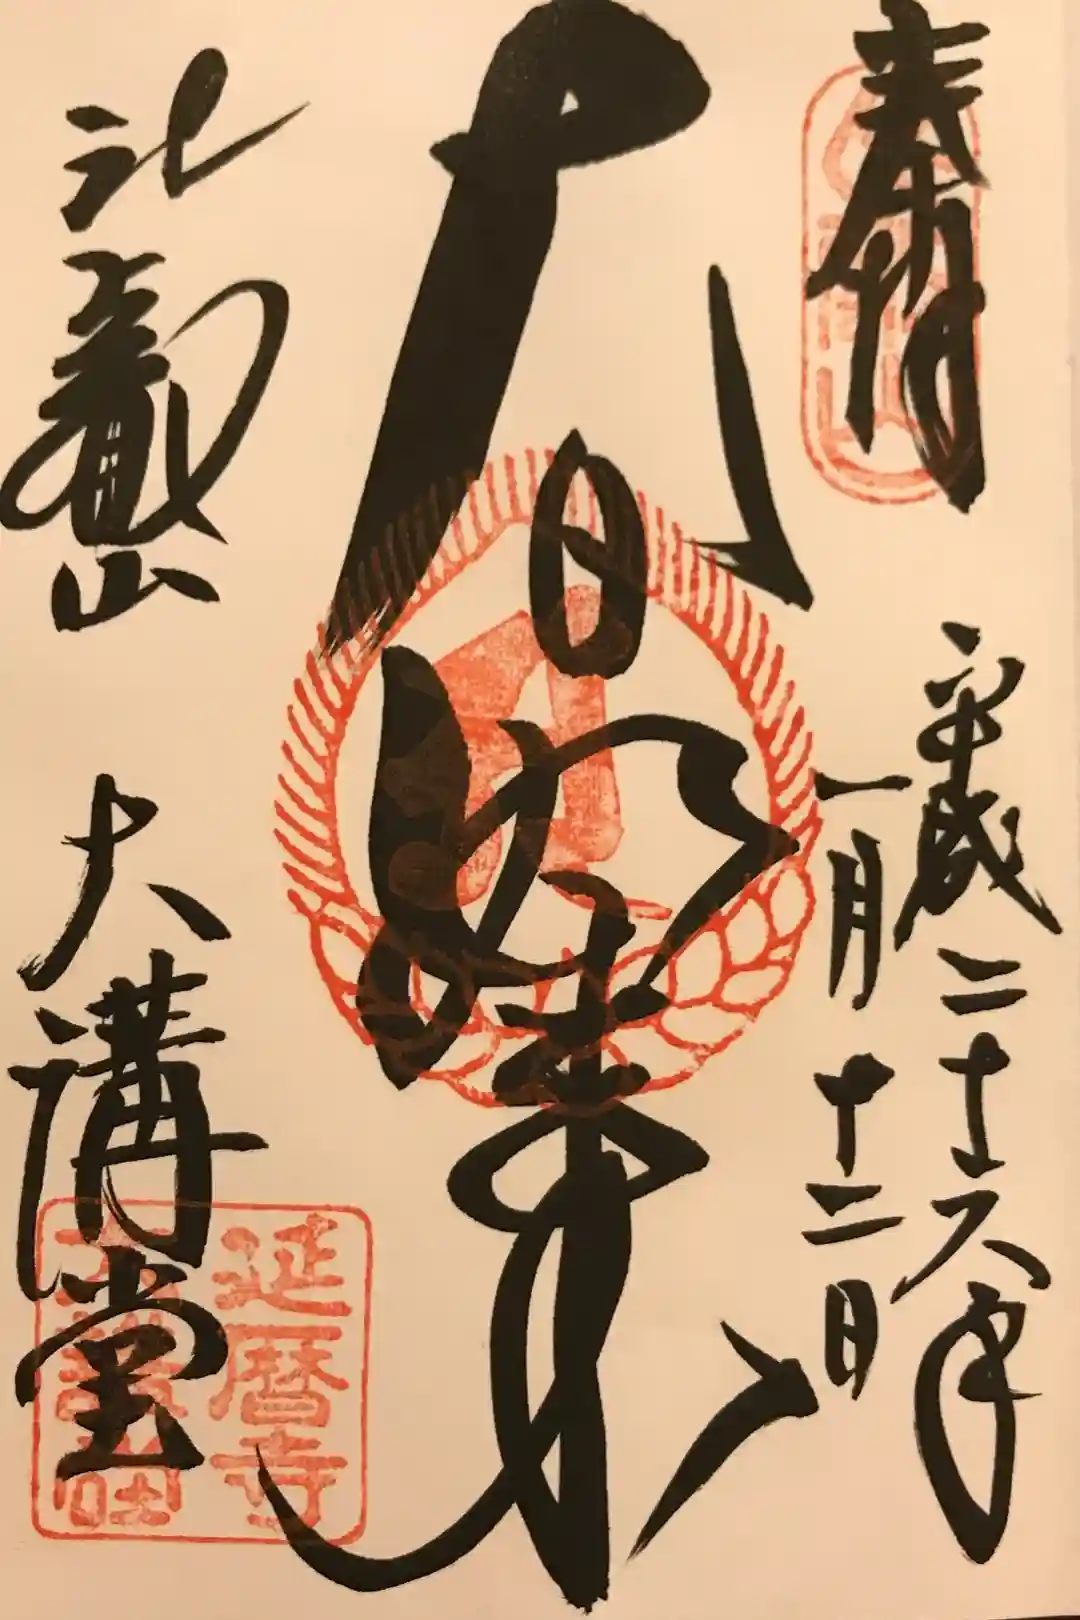 奉拝
平成二十六年
一月十二日
大日如来
比叡山 大講堂
延暦寺
大講堂印